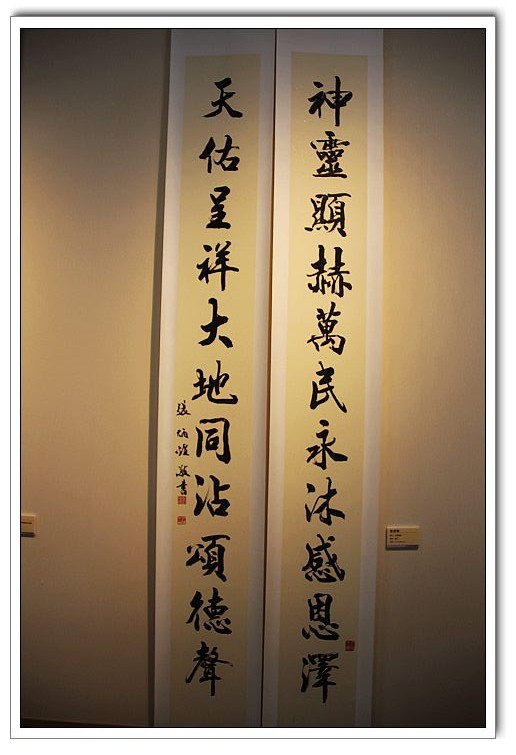 神靈顯赫萬民永沐感恩澤
天佑呈祥大地同沾頌德聲
張炳煌敬書